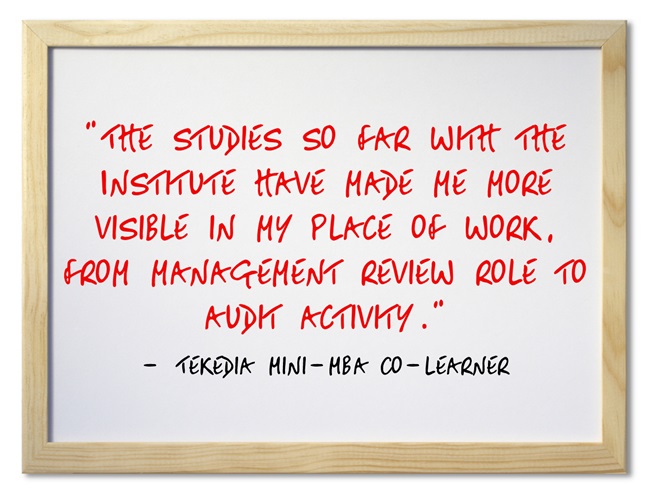 "THE STUDIES SO FAR WITH THE
INSTITUTE HAVE MADE ME MORE
VISIBLE IN MY PLACE OF WORK,
FROM MANAGEMENT REVIEW ROLE TO
AUDIT ACTIVITY."
- TEKEDIA MINI-MBA CO-LEARNER